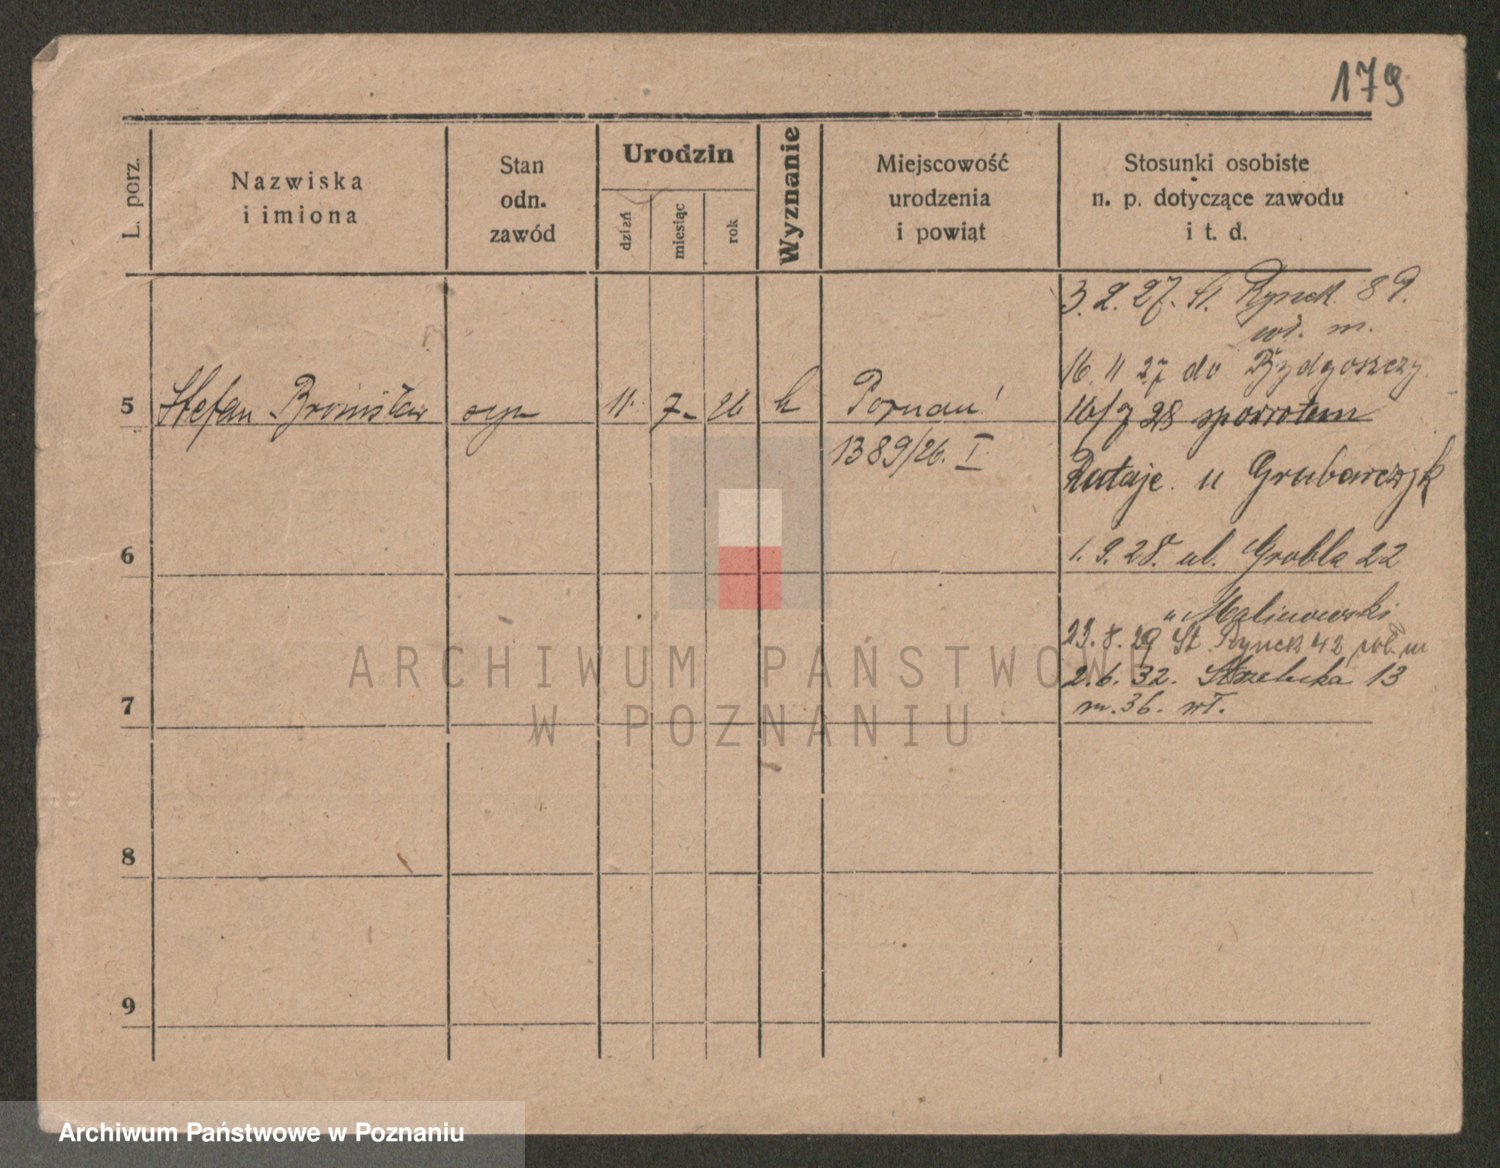 179
L. porz.
Nazwiska
i imiona
Stan
odn.
zawód
Urodzin
dzień
miesiąc
rok
Wyznanie
Miejscowość
urodzenia
i powiąt
Stosunki osobiste
n. p. dotyczące zawodu
i t. d.
3. 2. 27. St. Rynek 89.
wł. m.
16 11 27 do Bydgoszczy
5 Stefan Bronisław syn 11. 7- 26 k Poznań
16/7 28 spowrotem
1389/26. I.
Rataje u Grubarczyk
6
1. 9. 28. ul. Grobla 22
u Malinowski
23. 8. 29 St. Rynek 42, wł. m
2. 6. 32. Strzelecka 13
m. 36. wł.
7
8
9
ARCHIWUM PAŃSTWOWE
W POZNANIU
Archiwum Państwowe w Poznaniu